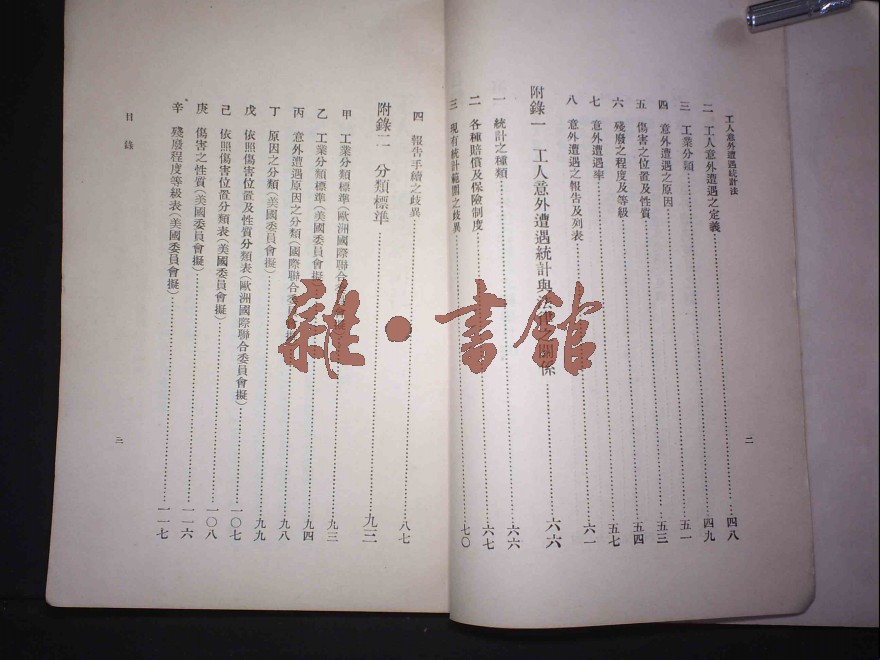 工人意外遭遇統計法
二 工人意外遭遇之定義……四八
三 工業分類……四九
四 意外遭遇之原因……五一
五 傷害之位置及性質……五三
六 殘廢之程度及等級……五四
七 意外遭遇率……五七
八 意外遭遇之報告及列表……六一
附錄一 工人意外遭遇統計與關係……六六
一 統計之種類……六六
二 各種賠償及保險制度……六七
三 現有統計範圍之歧異……七〇
二
四 報告手續之歧異……八七
附錄二 分類標準……九三
甲 工業分類標準(歐洲國際聯合委……九三
乙 工業分類標準(美國委員會擬……九四
丙 意外遭遇原因之分類(國際聯合委員……九八
丁 原因之分類(美國委員會擬)……九九
戊 依照傷害位置及性質分類表(歐洲國際聯合委員會擬)……一〇七
己 依照傷害位置分類表(美國委員會擬)……一〇八
庚 傷害之性質(美國委員會擬)……一一六
辛 殘廢程度等級表(美國委員會擬)……一一七
目錄
三
雜·書館